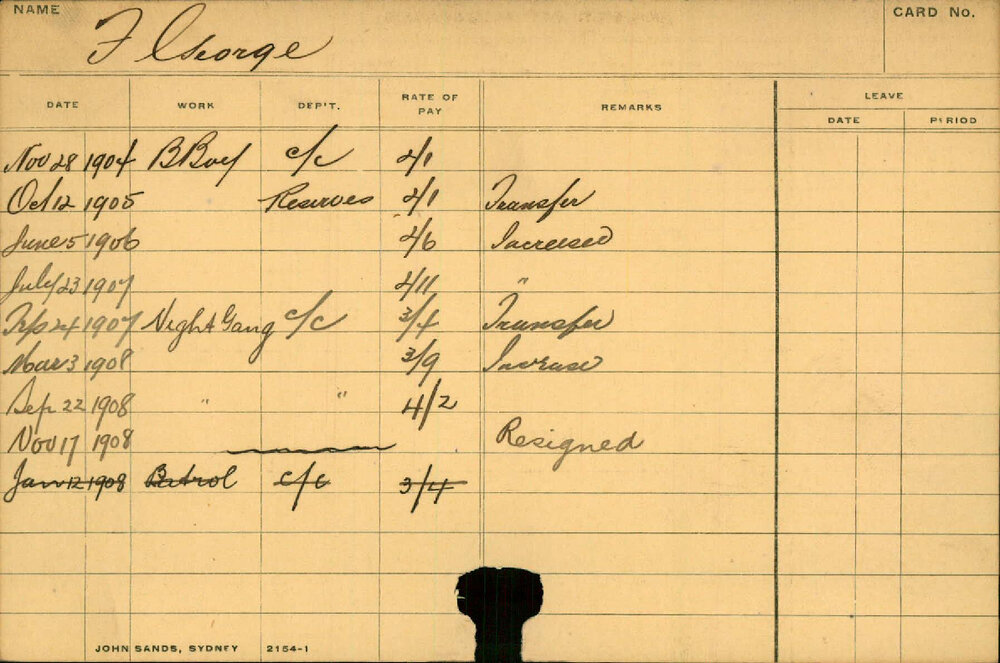 NAME
F George
CARD No.
DATE WORK DEP'T. RATE OF PAY REMARKS LEAVE
DATE PERIOD
Nov 28 1904 BBoy c/c 2/1
Oct 12 1905 Reserves 2/1 Transfer
June 5 1906 2/6 Increased
July 23 1907 2/11 "
Sep 24 1907 Night Gang c/c 3/4 Transfer
Mar 3 1908 3/9 Increase
Sep 22 1908 " " 4/2
Nov 17 1908 Resigned
Jan 12 1908 Patrol c/c 3/4
JOHN SANDS, SYDNEY 2154-1